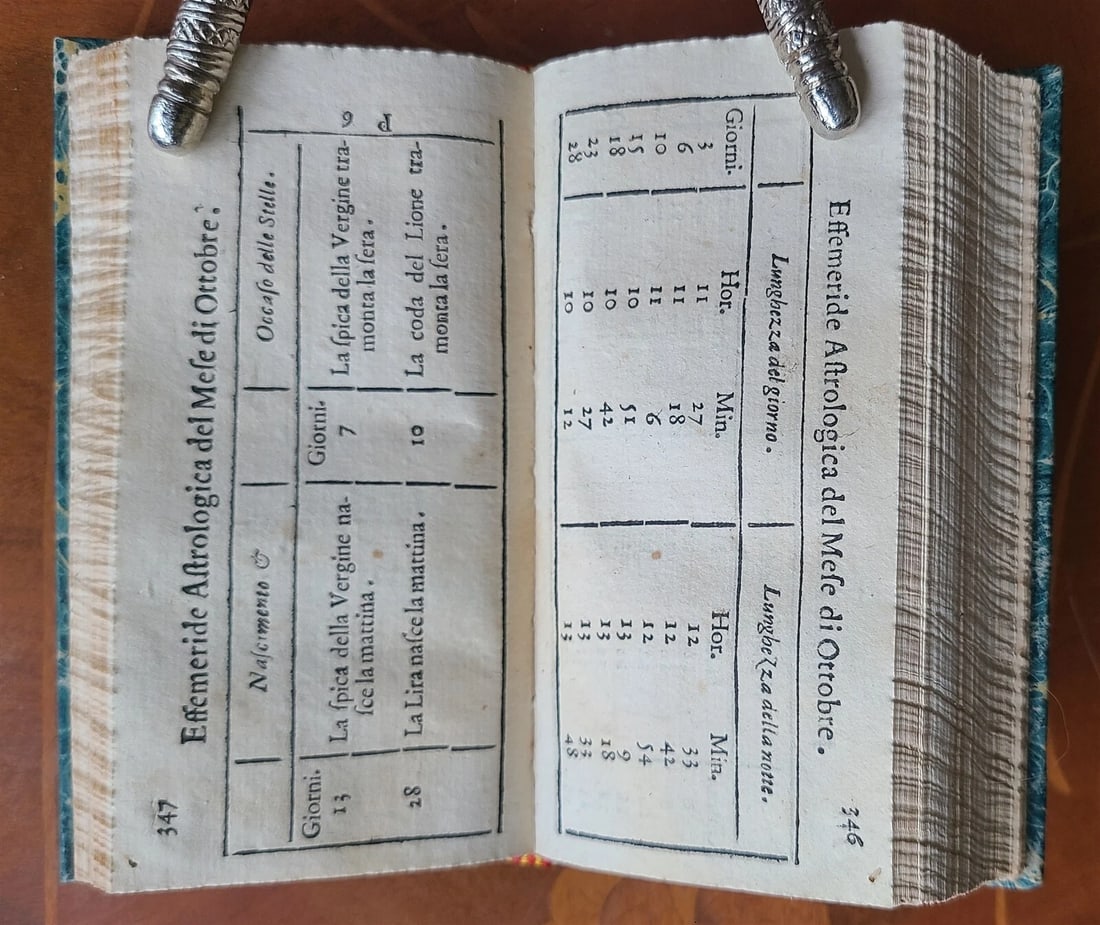 Effemeride Aſtrologica del Meſe di Ottobre. 346
Lunghezza del giorno. Lunghezza della notte.
Giorni. Hor. Min. Hor. Min.
3 11 27 12 33
6 11 18 12 42
10 11 6 12 54
15 10 51 13 9
18 10 42 13 18
23 10 27 13 33
28 10 12 13 48
347 Effemeride Aſtrologica del Meſe di Ottobre.
Naſcimento & Occaſo delle Stelle.
Giorni. Giorni.
13 La ſpica della Vergine na- 7 La ſpica della Vergine tra-
ſce la mattina. monta la ſera.
28 La Lira naſce la mattina. 10 La coda del Lione tra-
monta la ſera.